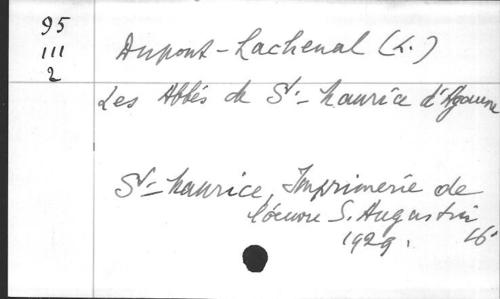 95
III
2
Dupont-Lachenal (L.)
Les Abbés de St-Maurice d'Agaune
St-Maurice, Imprimerie de
l'oeuvre S. Augustin
1929. 16°